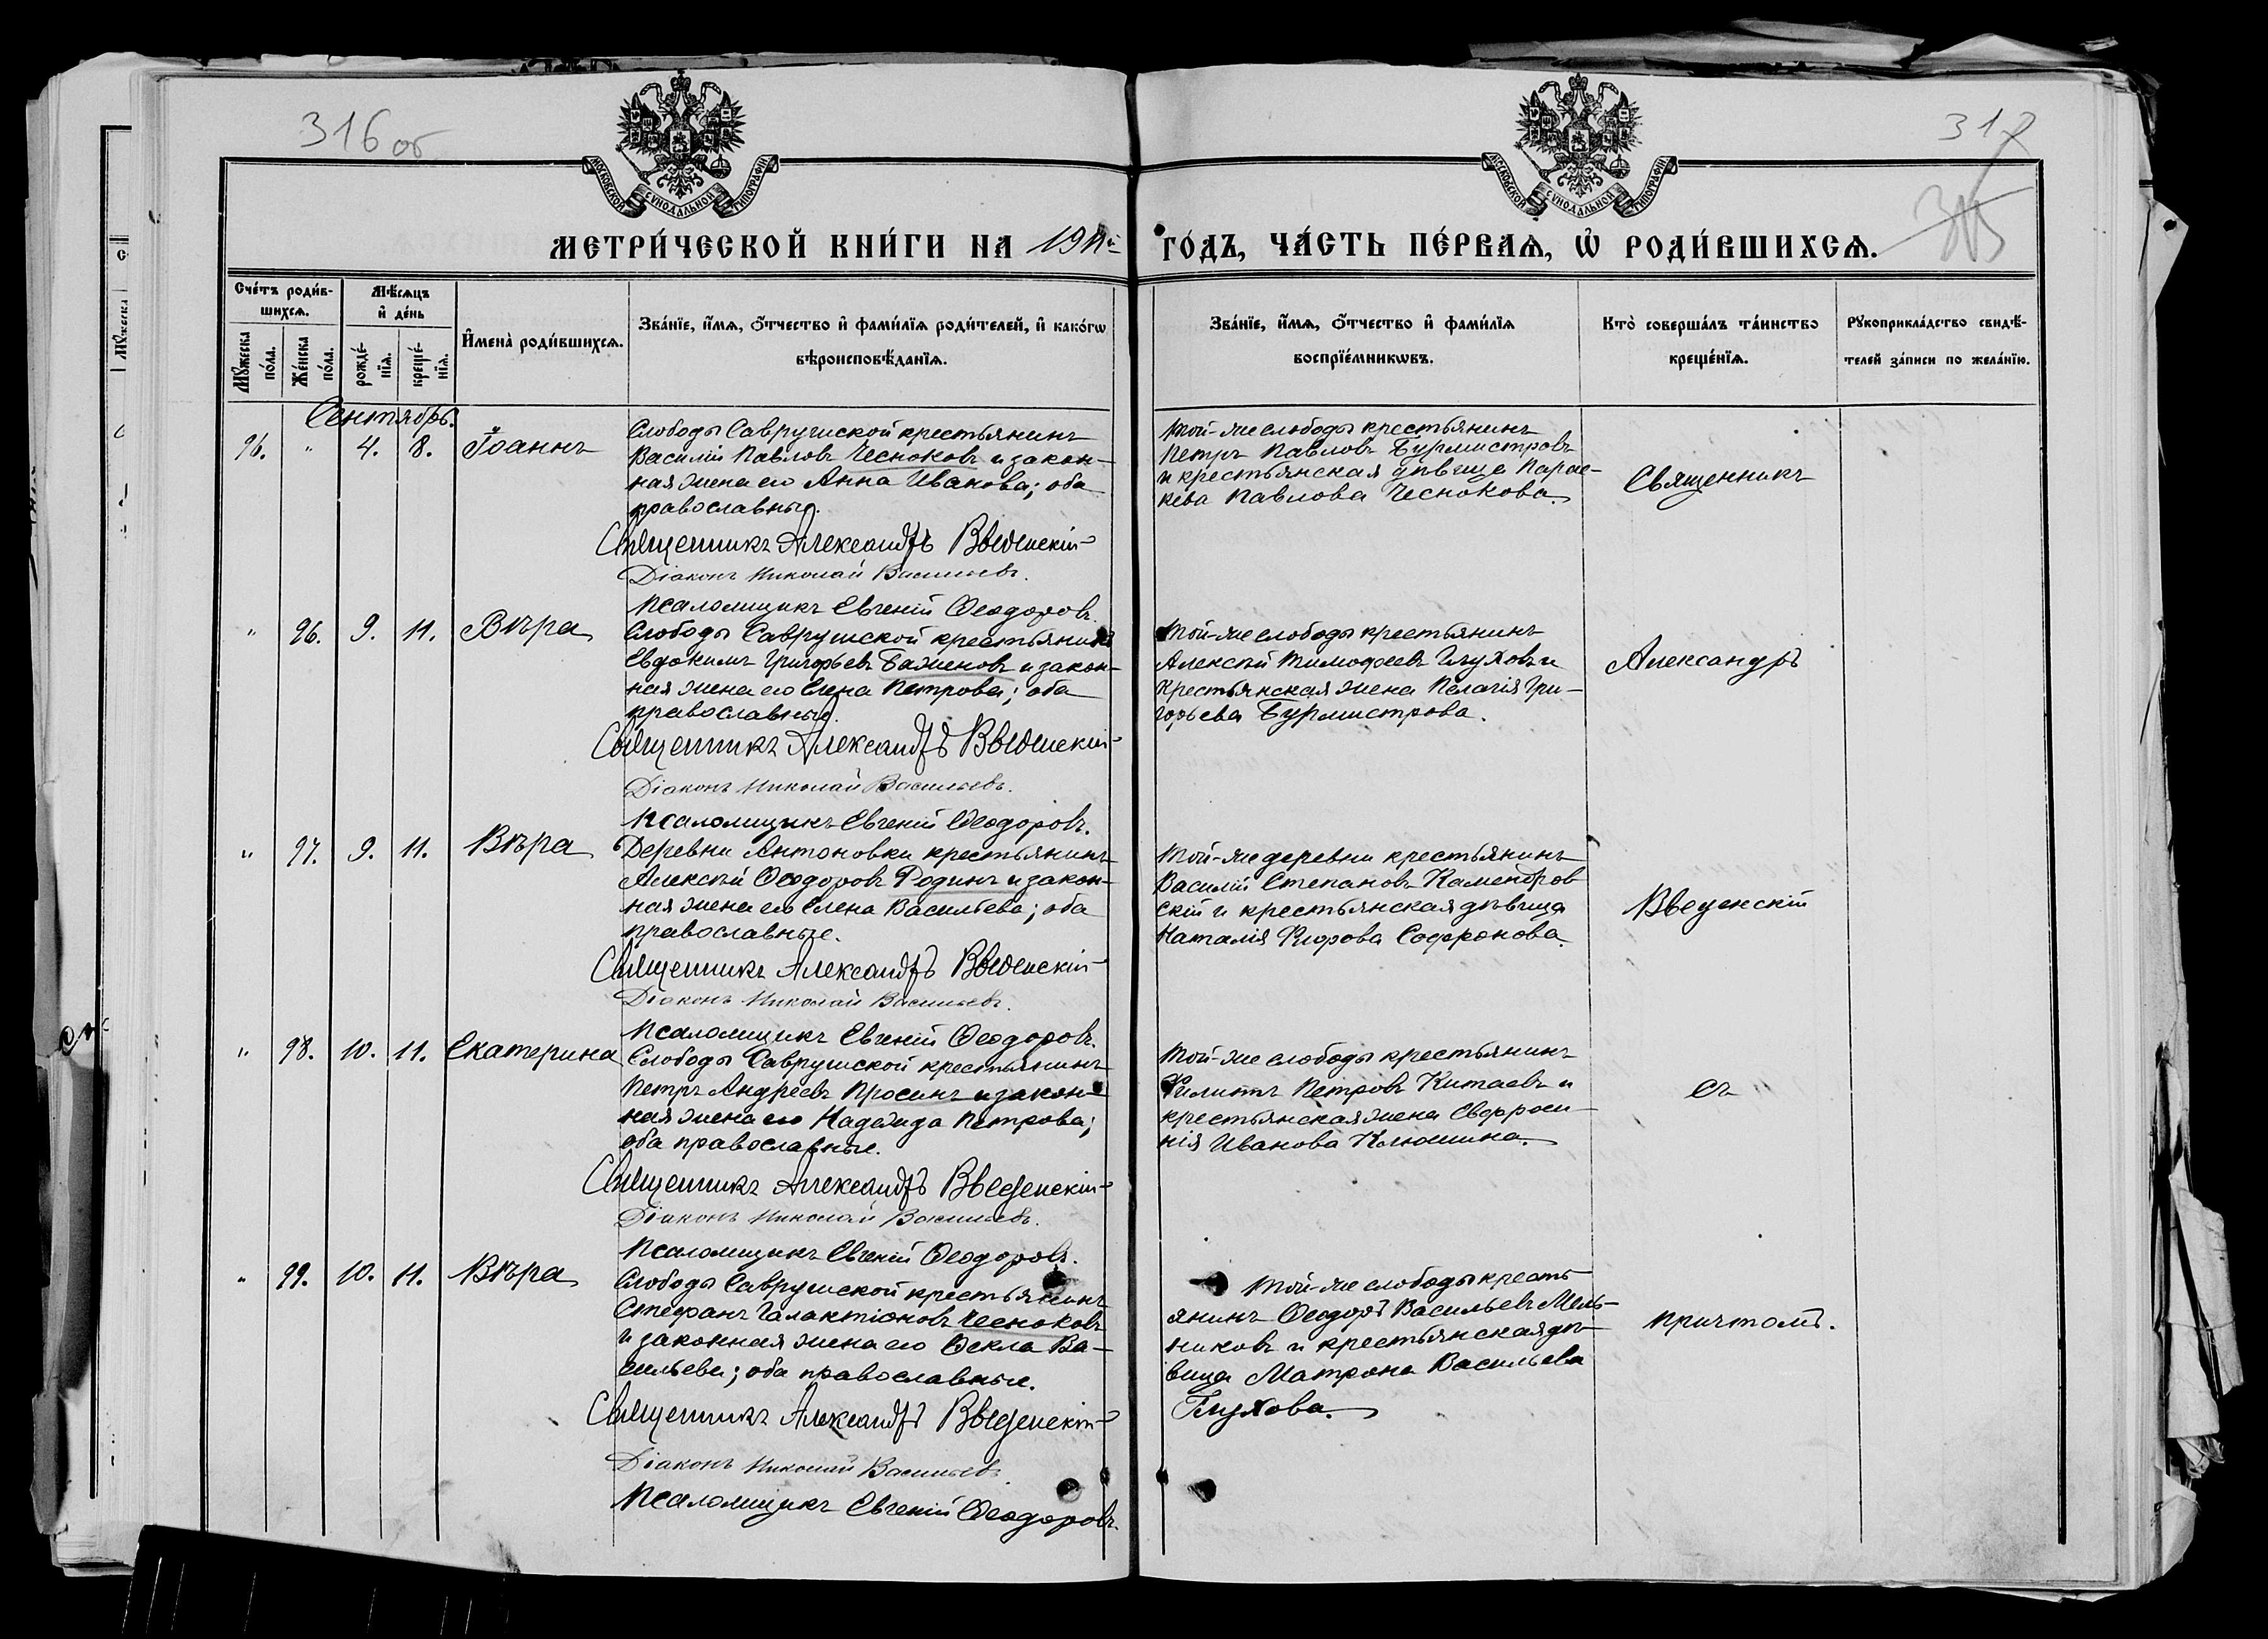 316 об
317
305
МОСКОВСКОЙ СѴНОДАЛЬНОЙ ТИПОГРАФІИ
МОСКОВСКОЙ СѴНОДАЛЬНОЙ ТИПОГРАФІИ
МЕТРИ́ЧЕСКОЙ КНИ́ГИ НА 1911й ГО́ДЪ, ЧА́СТЬ ПЕ́РВАѦ, Ѡ҆ РОДИ́ВШИХСѦ.
Сче́тъ роди́в-
шихсѧ.
Мꙋ́жеска по́ла.
Же́нска по́ла.
Мѣ́сѧцъ
и҆ де́нь
рожде́-
нїѧ.
креще́-
нїѧ.
И҆мена̀ роди́вшихсѧ.
Зва́нїе, и҆́мѧ, ѻ҆́тчество и҆ фами́лїѧ роди́телей, и҆ како́гѡ
вѣроисповѣ́данїѧ.
Зва́нїе, и҆́мѧ, ѻ҆́тчество и҆ фами́лїѧ
воспрїе́мникѡвъ.
Кто̀ соверша́лъ та́инство
креще́нїѧ.
Рꙋкоприкла́дство свидѣ́-
телей за́писи по жела́нїю.
Сентябрь.
96. " 4. 8. Іоаннъ
Слободы Саврушской крестьянинъ
Василій Павловъ Чесноковъ и закон-
ная жена его Анна Иванова; оба
православные.
Священникъ Александръ Введенскій
Діаконъ Николай Васильевъ.
Псаломщикъ Евгеній Ѳеодоровъ.
Той-же слободы крестьянинъ
Петръ Павловъ Бурмистровъ
и крестьянская дѣвица Парас-
кева Павлова Чеснокова.
Священникъ
" 96. 9. 11. Вѣра
Слободы Саврушской крестьянинъ
Евдокимъ Григорьевъ Баженовъ и закон-
ная жена его Елена Петрова; оба
православные.
Священникъ Александръ Введенскій
Діаконъ Николай Васильевъ.
Псаломщикъ Евгеній Ѳеодоровъ.
Той-же слободы крестьянинъ
Алексѣй Тимофеевъ Глуховъ и
крестьянская жена Пелагія Гри-
горьева Бурмистрова.
Александръ
" 97. 9. 11. Вѣра
Деревни Антоновки крестьянинъ
Алексѣй Ѳеодоровъ Родинъ и закон-
ная жена его Елена Васильева; оба
православные.
Священникъ Александръ Введенскій
Діаконъ Николай Васильевъ.
Псаломщикъ Евгеній Ѳеодоровъ.
Той-же деревни крестьянинъ
Василій Степановъ
скій и крестьянская дѣвица
Наталія Софронова.
Введенскій
" 98. 10. 11. Екатерина
Слободы Саврушской крестьянинъ
Петръ Андреевъ Просинъ и закон-
ная жена его Надежда Петрова;
оба православные.
Священникъ Александръ Введенскій
Діаконъ Николай Васильевъ.
Псаломщикъ Евгеній Ѳеодоровъ.
Той-же слободы крестьянинъ
Филиппъ Петровъ Китаевъ и
крестьянская жена Евфроси-
нія Иванова Клюшина.
съ
" 99. 10. 11. Вѣра
Слободы Саврушской крестьянинъ
Стефанъ Галактіоновъ Чесноковъ
и законная жена его Ѳекла Ва-
сильева; оба православные.
Священникъ Александръ Введенскій
Діаконъ Николай Васильевъ.
Псаломщикъ Евгеній Ѳеодоровъ.
Той-же слободы кресть-
янинъ Ѳеодоръ Васильевъ Мель-
никовъ и крестьянская дѣ-
вица Матрона Васильева
Глухова.
причтомъ.